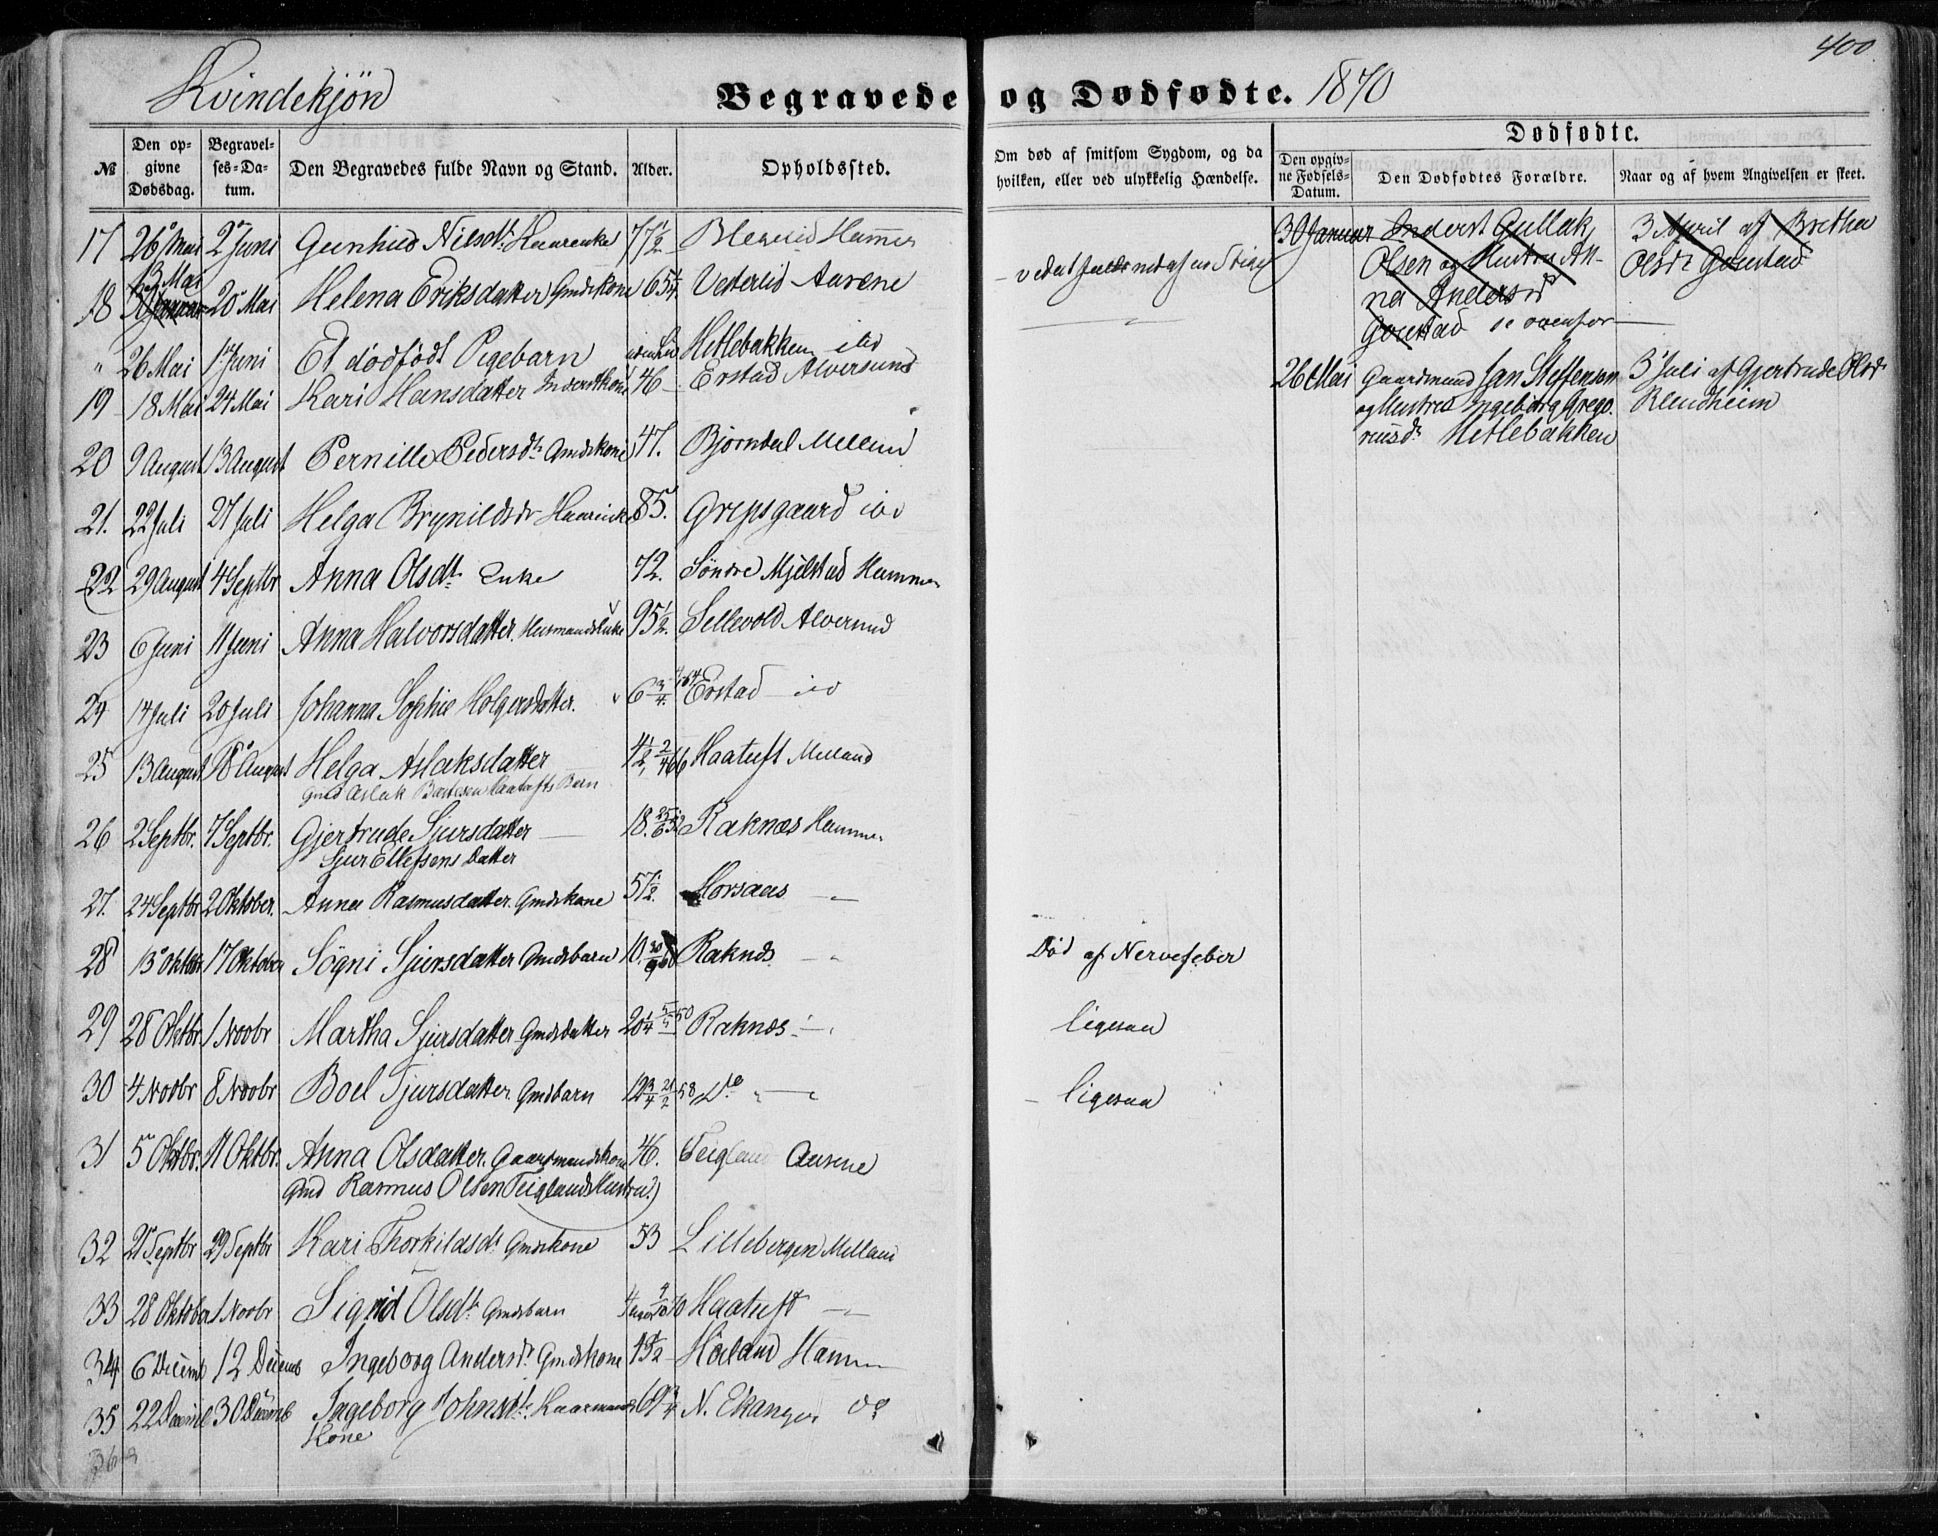 400
Kvindekjøn Begravede og Dødfødte. 1870
№ Den opgivne Dødsdag. Begravelses-Datum. Den Begravedes fulde Navn og Stand. Alder. Opholdssted. Om død af smitsom Sygdom, og da hvilken, eller ved ulykkelig Hændelse. Dødfødte. Den opgivne Fødsels-Datum. Den Dødfødtes Forældre. Naar og af hvem Angivelsen er skeet.
17 26 Mai 2 Juni Gunhild Nilsdt. 77 1/2 Hammer
30 Januar Inderst Gullak Olsen og Hustru Anna Andersd se ovenfor
3 April af Bretha Olsdr
18 13 Mai 20 Mai Helena Eriksdatter Gmdskone 65 1/4 Vetterlid Aarene
" 26 Mai 1 Juni Et dødfødt Pigebarn Hetlebakken ibd
26 Mai Gaardmand Jan Steffensen og Hustru Ingeborg Gregoriusdr Hetlebakken
3 Juli af Gjertrude Olsdr
19 18 Mai 24 Mai Kari Hansdatter Inderstkone 46 Erstad Alversund
20 9 August 13 August Pernille Pedersdtr Gmdskone 47. Bjørndal
21. 22 Juli 27 Juli Helga Brynildsdr 85. Grepsgaard ibd
22 29 August 4 Septbr Anna Olsdt. Enke 72. Søndre Mjelstad Hammer
23 6 Juni 11 Juni Anna Halvorsdatter. Husmandsenke 95 1/2. Sellevold Alversund
24 14 Juli 20 Juli Johanna Sophie Holgersdatter. 6 3/4. Erstad ibd
25 13 August 18 August Helga Aslaksdatter 4 1/2, 2/4 66 Haatuft Melland
Gmd Aslak Haatufts Barn
26 2 Septbr. 7 Septbr. Gjertrude Sjursdatter 18. Raknæs Hammer
Sjur Ellefsens Datter
27. 24 Septbr 2 Oktober. Anna Rasmusdatter. Gmdskone 57 1/2. Horsaas
28 13 Oktbr 17 Oktober Søgni Sjursdatter Gmdsbarn 10. Raknæs Død af Nervefeber
29 28 Oktbr. 1 Novbr Martha Sjursdatter Gmdsdatter 20 1/4 Raknæs ligesaa
30 4 Novbr 8 Novbr Boel Sjursdatter. Gmdsbarn 12 3/4 21/2 58 Do ligesaa
31 5 Oktbr. 11 Oktbr. Anna Olsdatter. Gaardmandskone 46. Teigland Aarene
Gmd Rasmus Olsen Teiglands Hustru.)
32 21 Septbr 29 Septbr Kari Thorkildsdr Gmdskone 53 Lillebergen Melland
33 28 Oktober 1 Novbr Sigrid Olsdt. Gmdsbarn Haatuft
34 6 Decemb 12 Decemb Ingeborg Andersdr Gmdskone Høiland Hammer
35 22 Decemb 30 Decemb Ingeborg Johnsdt. Kaarmands Kone 69 3/4 N. Ekanger do
36